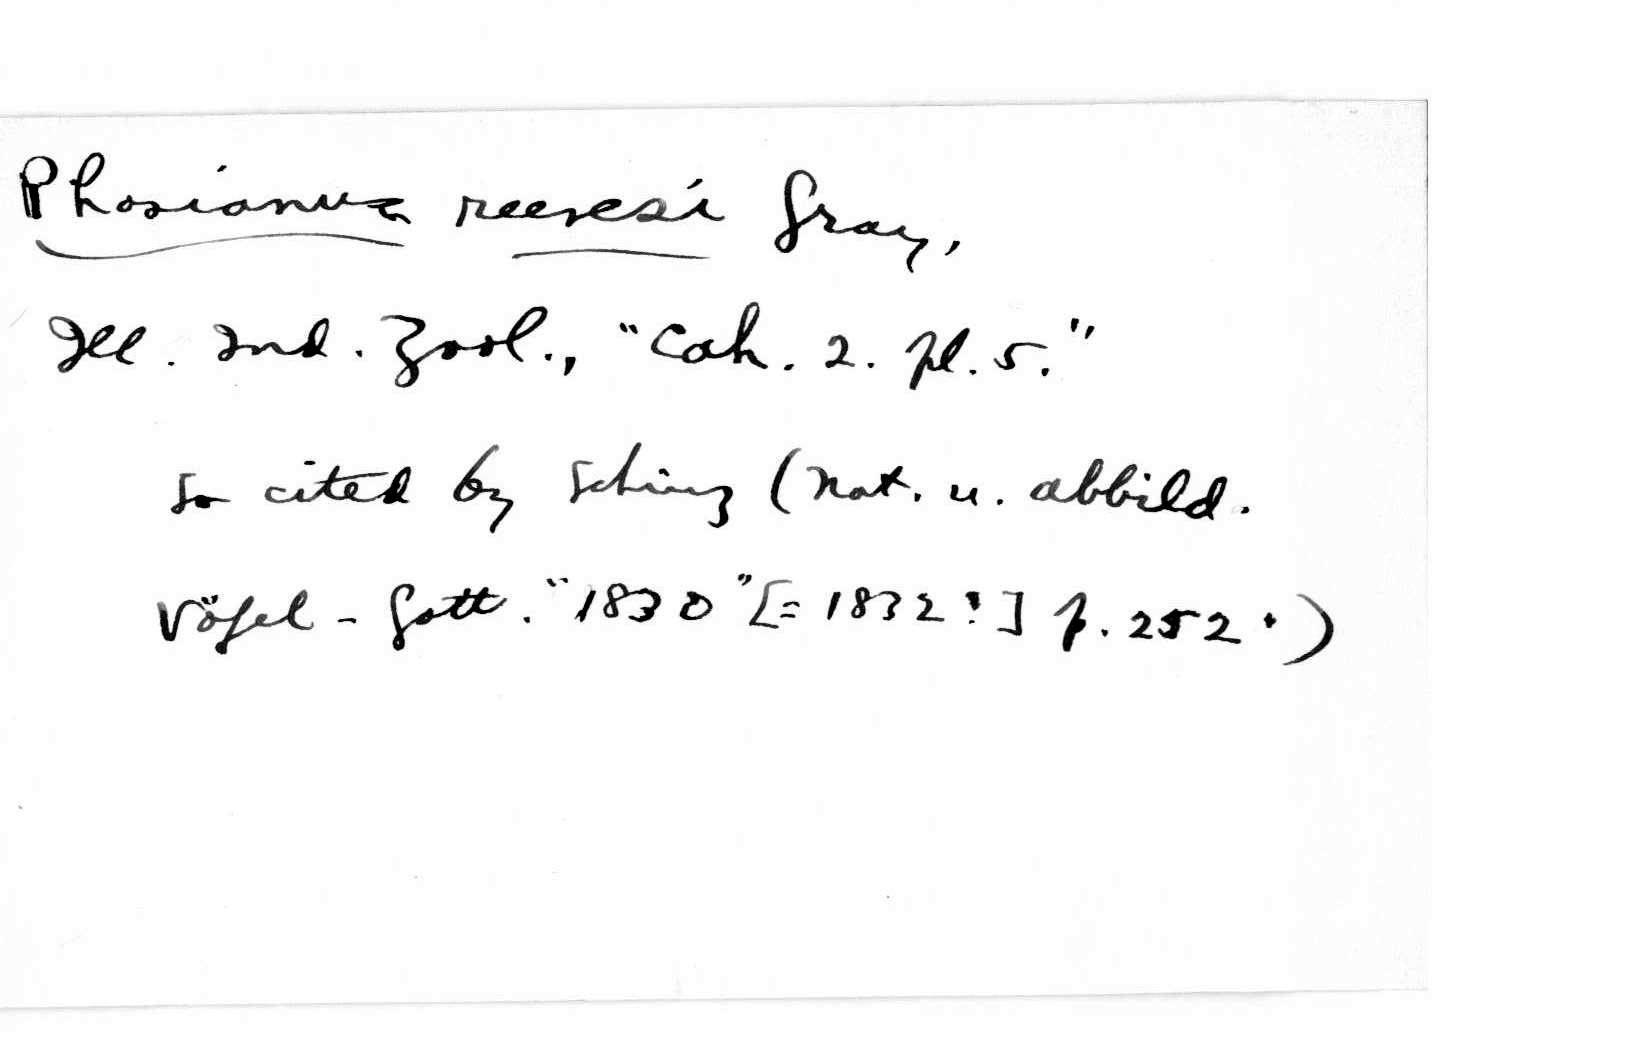 Phasianus reevesi Gray,
Ill. Ind. Zool., "Cah. 2. pl. 5."
so cited by Schinz (Nat. u. abbild.
Vögel - Gatt. "1830" [= 1832?] p. 252.)